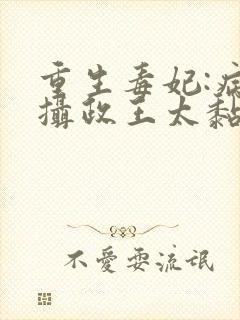 重生毒妃:病
攝政王太黏
不愛耍流氓